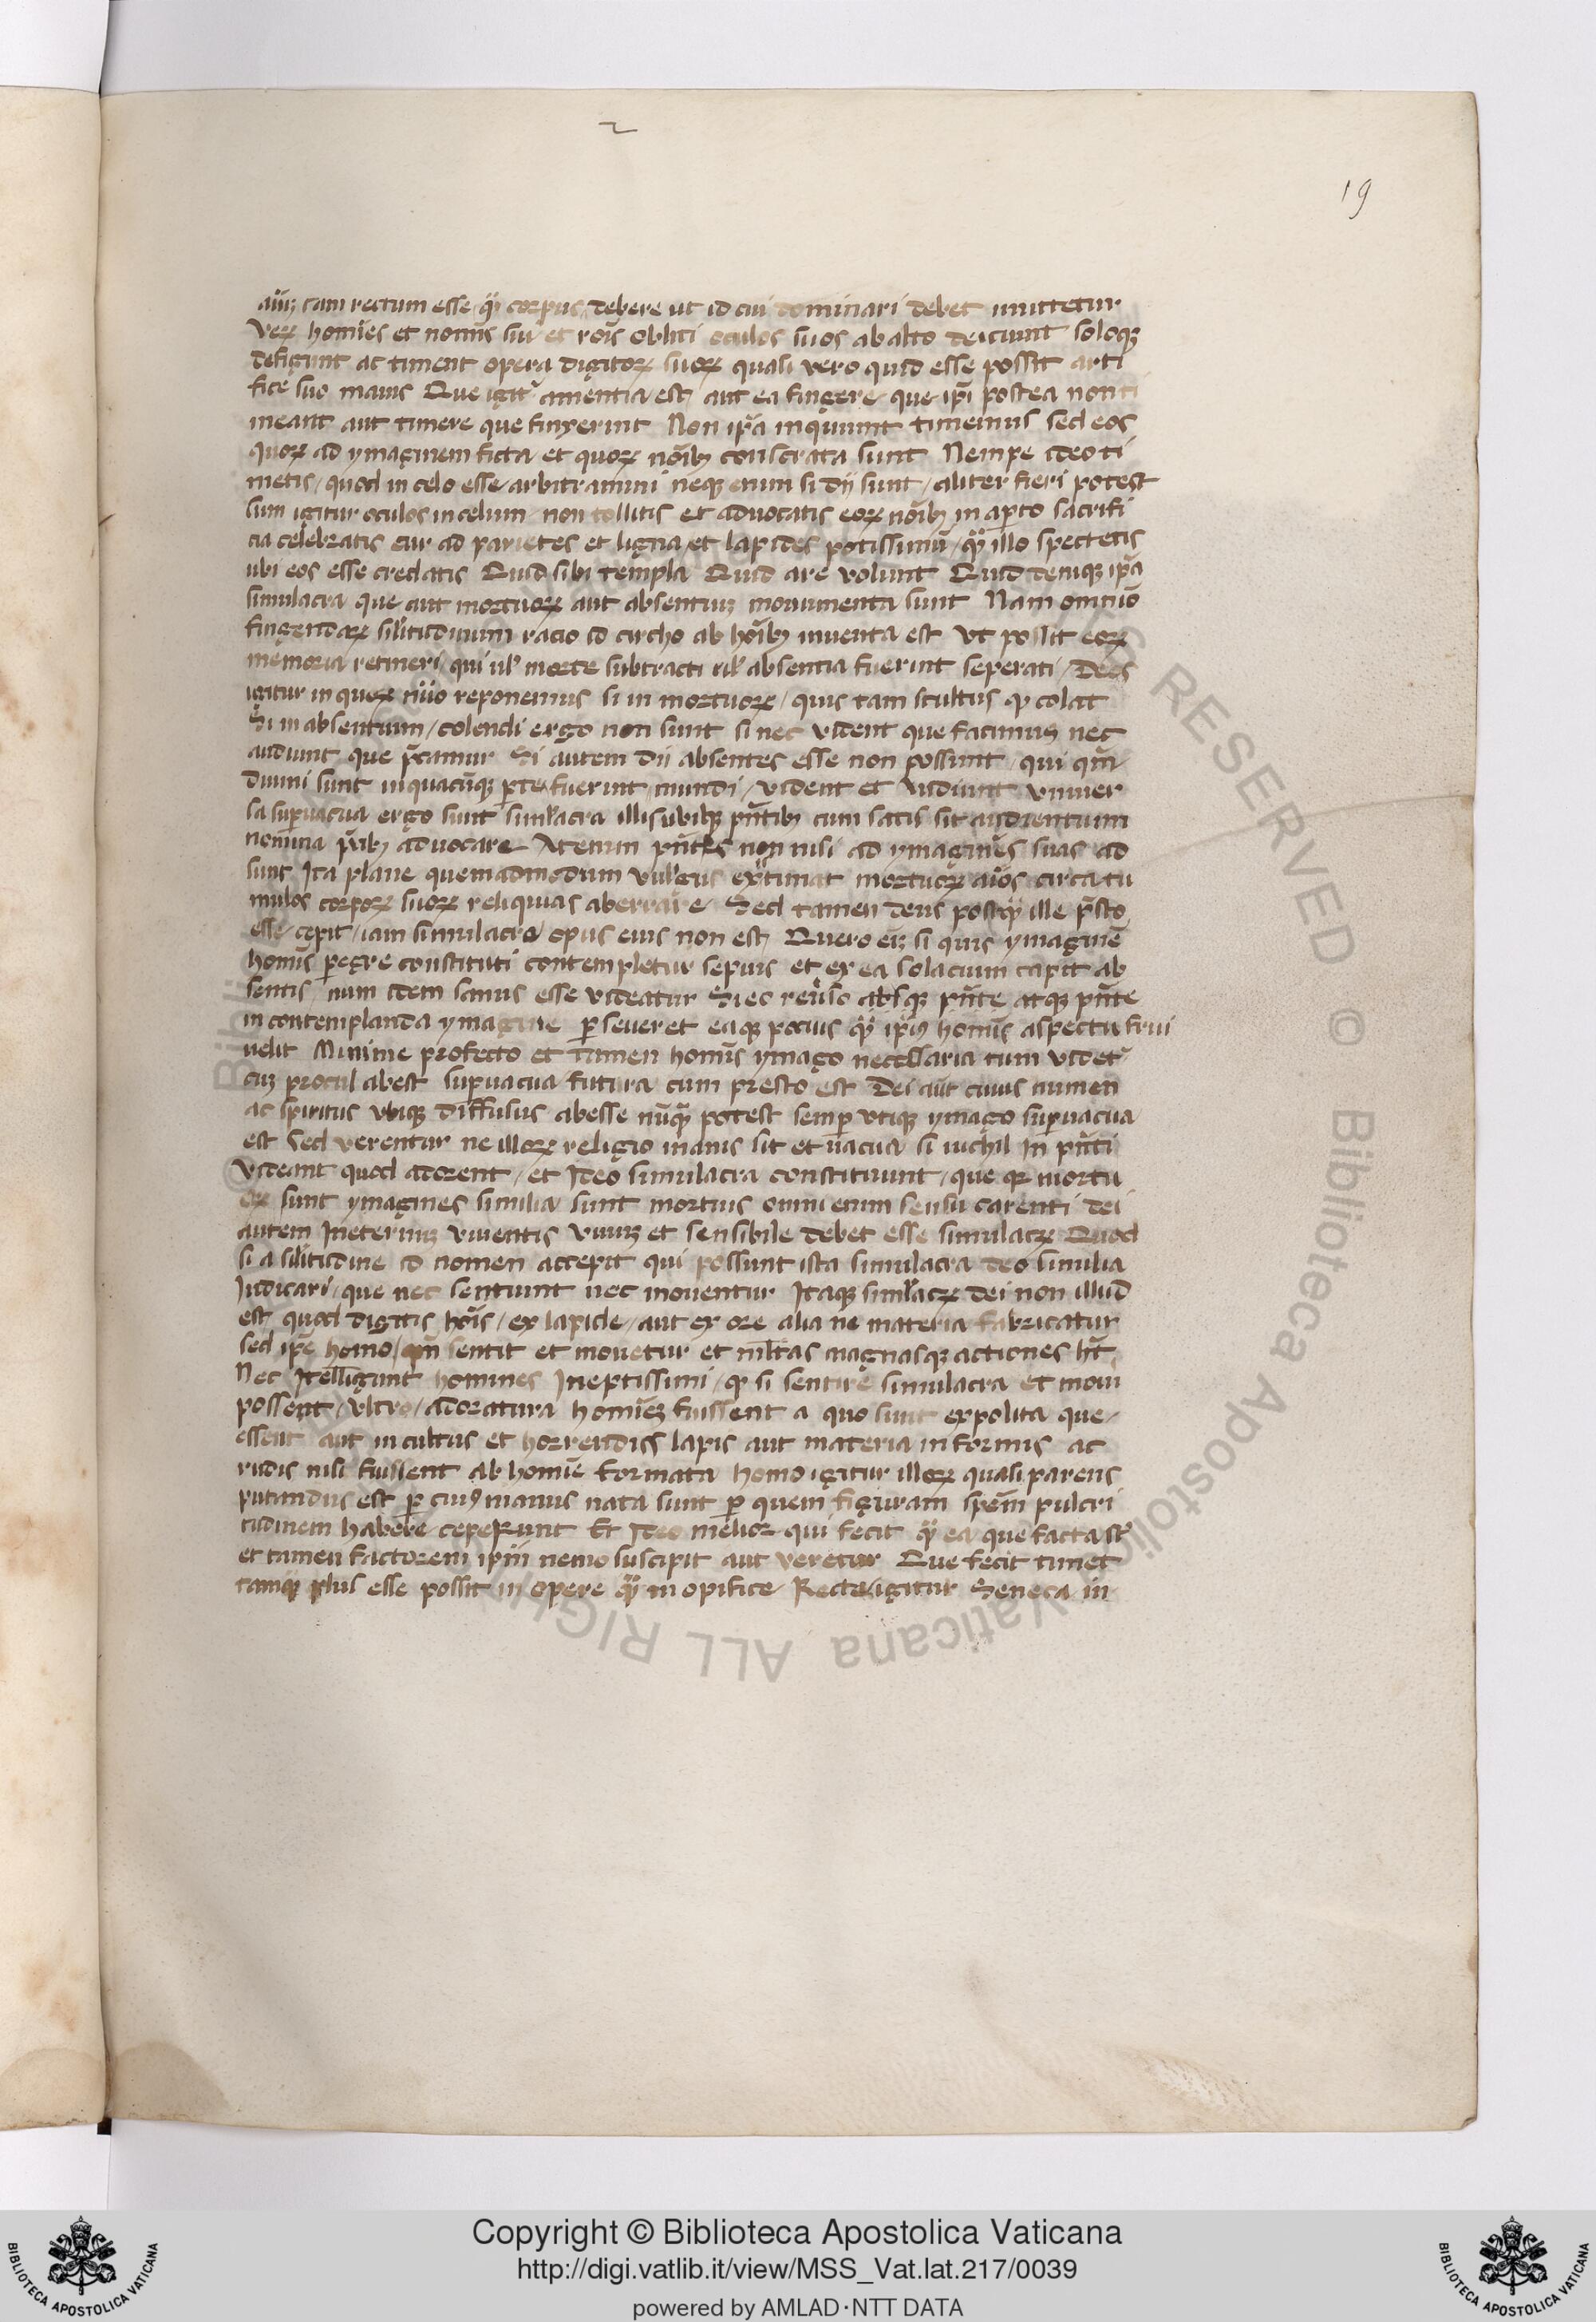 2
19
aĩaȝ tam rectum esse / q̃ȝ corpus debere ut id cui dominari debet imittetur
Verꝝ homĩes et nomĩs sui et rõis obliti oculos suos ab alto deiciunt soloqȝ
defigunt ac timent opera digitoꝝ suoꝝ quasi vero quid esse possit arti
fice suo maius Que igit᷑ amentia est aut ea fingere que ip̃i postea non ti
meant aut timere que finxerint Non ip̃a inquiunt timemus sed eos
quoꝝ ad ymaginem ficta et quoꝝ nõibȝ consecrata sunt Nempe ideo ti
metis / quod in celo esse arbitramini neqȝ enim si dij sunt / aliter fieri potest
igitur oculos in celum non tollitis et advocatis eoꝝ nõibȝ in aꝑto sacrifi
cia celebratis cur ad parietes et ligna et lapides potissimũ / q̃ȝ illo spectetis
ubi eos esse credatis Quid sibi templa Quid are volunt Quid deniqȝ ip̃a
simulacra que aut mortuoꝝ aut absentiuȝ monumenta sunt Nam omnĩo
fingendaꝝ sil̃itudinum racio id circho ab hõibȝ inventa est Ut possit eoꝝ
memoria retineri / qui ul̃ morte subtracti ul̃ absentia fuerint seperati / Deos
igitur in quoꝝ nũo reponemus si in mortuoꝝ / quis tam stultus ꝙ colat
Si in absentium / colendi ergo non sunt si nec vident que facimus nec
audiunt que p̃camur Si autem dii absentes esse non possunt / qui qm̃
divini sunt in quacũqȝ ꝑte fuerint mundi / vident et audiunt univer
sa suꝑvacua ergo sunt siml̃acra illis ubiqȝ pñtibȝ cum satis sit audientium
nomina p̃cibȝ advocare At enim pñtes non nisi ad ymagines suas ad
sunt Ita plane quemadmodum vulgus extimat mortuoꝝ aĩos circa tu
mulos corpoꝝ suoꝝ reliquias aberrare Sed tamen deus postq̃ȝ ille p̃sto
esse cepit / iam simulacro opus eius non est Quero eĩȝ si quis ymaginẽ
homĩs ꝑegre constituti contempletur sepius et ex ea solacium capit ab
sentis / num idem sanus esse videatur Si eo rev̾so absqȝ pñte atqȝ pñte
in contemplanda ymagine ꝑseveret eaqȝ pocius q̃ȝ ip̃iꝰ homĩs aspectu frui
velit Minime profecto et tamen homĩs ymago necessaria tum videt᷑
cuȝ procul abest suꝑvacua futura cum presto est Dei aũt cuius numen
ac spiritus ubiqȝ diffusus abesse nũqȝ potest semꝑ utiqȝ ymago suꝑvacua
est Sed verentur ne illoꝝ religio inanis sit et vacua si nichil in pñti
videant quod adorent / et Ideo simulacra constituunt / que qr mortu
oꝝ sunt ymagines similia sunt mortuis omni enim sensu carenti dei
autem Ineternuȝ viventis vivuȝ et sensibile debet esse simulacꝝ Quod
si a sil̃itudine id nomen accepit qui possunt ista simulacra deo similia
Iudicari / que nec sentiunt nec moventur Itaqȝ siml̃acꝝ dei non illud
est quod digitis hõis / ex lapide / aut ex ere alia ne materia fabricatur
sed ip̃e homo / qm̃ sentit et movetur et ml̃tas magnasqȝ actiones ht̃
Nec Itelligunt homines Ineptissimi / qr si sentire simulacra et movi
possent / ultro / adoratura homiēȝ fuissent a quo sunt expolita que
essent aut incultus et horrendiss lapis aut materia informis ac
rudis nisi fuissent ab homĩe formata homo igitur illoꝝ quasi parens
putandus est ꝑ cuiꝰ manus nata sunt ꝑ quem figuram spẽm pulcri
tudinem habere ceperunt Et Ideo melior qui fecit q̃ȝ ea que facta st̃
et tamen factorem ip̃m nemo suscipit aut veretur Que fecit timet
tamq̃ȝ plus esse possit in opere q̃ȝ in opifice Recte igitur Seneca in
Copyright © Biblioteca Apostolica Vaticana
http://digi.vatlib.it/view/MSS_Vat.lat.217/0039
powered by AMLAD·NTT DATA
BIBLIOTECA APOSTOLICA VATICANA
BIBLIOTECA APOSTOLICA VATICANA
© Biblioteca Apostolica Vaticana ALL RIGHTS RESERVED